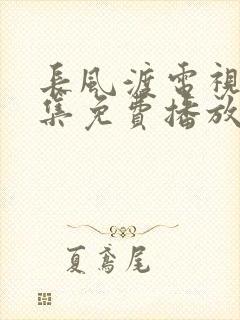 長風渡電視
集免費播放
夏鳶尾